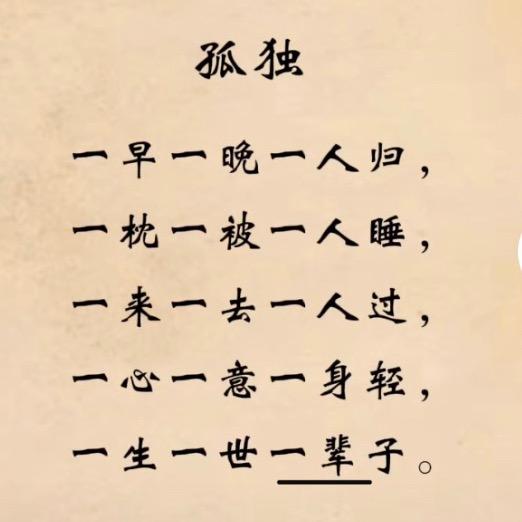 孤独
一早一晚一人归，
一枕一被一人睡，
一来一去一人过，
一心一意一身轻，
一生一世一辈子。